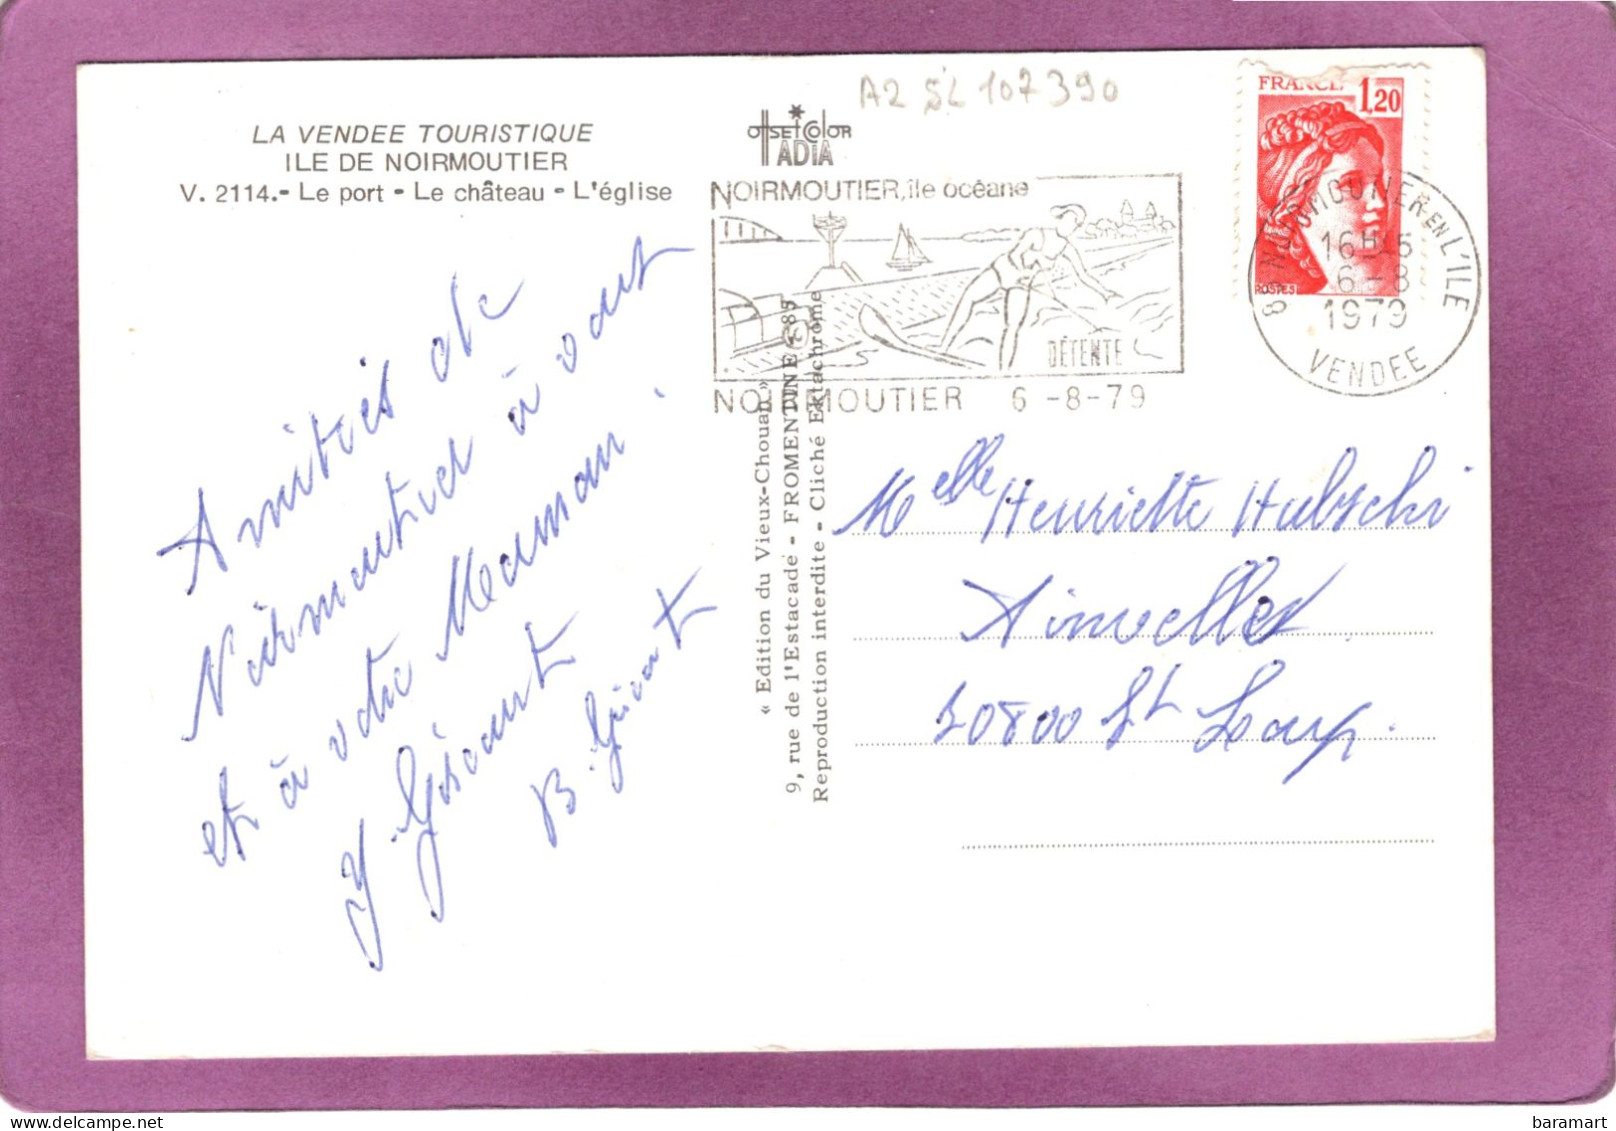 A2 SL 107390
LA VENDEE TOURISTIQUE
ILE DE NOIRMOUTIER
V. 2114.- Le port - Le château - L'église
OffSEtColoR
ADIA
NOIRMOUTIER, île océane
DÉTENTE
NOIRMOUTIER 6 -8-79
FRANCE 1,20
POSTES
NOIRMOUTIER-EN-L'ILE
16H15
6 -8
1979
VENDEE
Amitiés de
Noirmoutier à vous
et à votre Maman.
Y. Gisant
B. Gisant
« Edition du Vieux-Chouan »
9, rue de l'Estacade - FROMENTINE - 85
Reproduction interdite - Cliché Ektachrome
Melle Henriette Hubschi
Ainvelles
30800 St Loup.
baramart